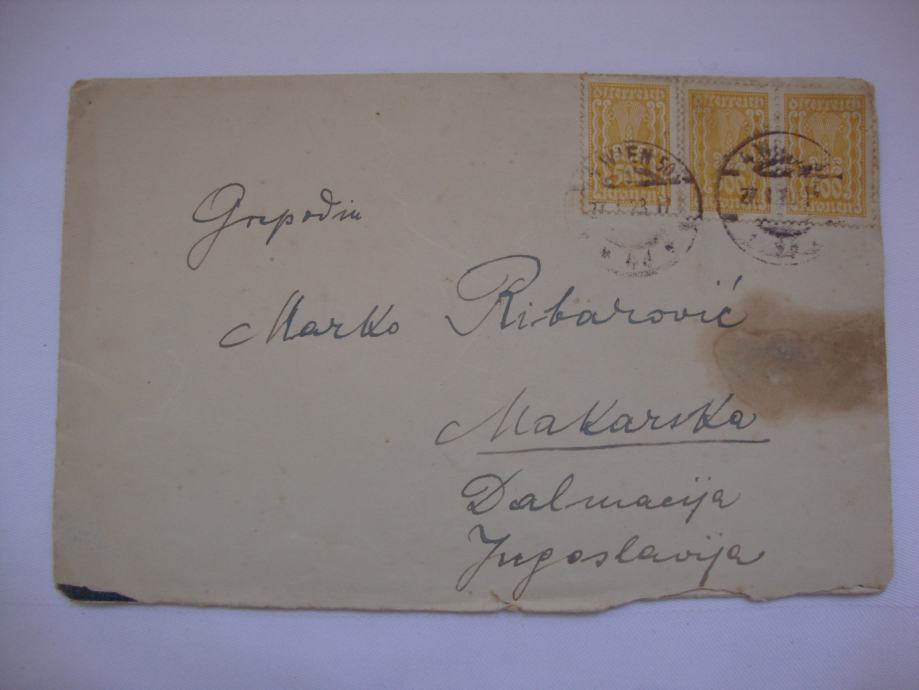 Österreich Österreich Österreich
500 Kronen
WIEN 50
Gospodin
Marko Ribarović
Makarska
Dalmacija
Jugoslavija